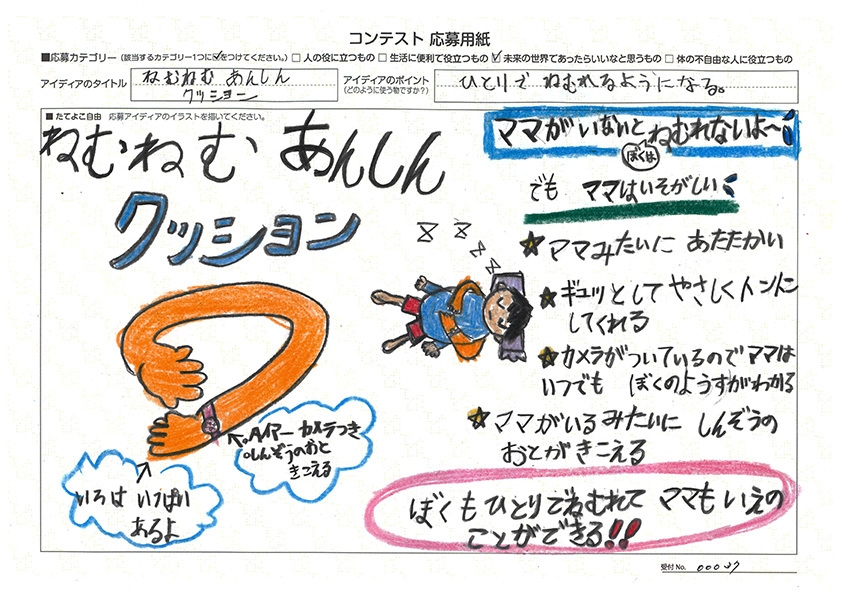 コンテスト 応募用紙
■応募カテゴリー (該当するカテゴリー1つに☑をつけてください。) □ 人の役に立つもの □ 生活に便利で役立つもの ☑ 未来の世界であったらいいなと思うもの □ 体の不自由な人に役立つもの
アイディアのタイトル
ねむねむ あんしん
クッション
アイディアのポイント
(どのように使う物ですか?)
ひとりで ねむれるようになる。
■ たてよこ自由 応募アイディアのイラストを描いてください。
ねむねむ あんしん
クッション
ママがいないと ねむれないよ〜
ぼくは
でも ママはいそがしい
★ママみたいに あたたかい
★ギュッとして やさしくトントン
してくれる
★カメラがついているのでママは
いつでも ぼくのようすがわかる
★ママがいるみたいに しんぞうの
おとがきこえる
z z z z
・タイマー カメラつき
・しんぞうのおと
きこえる
いろは いっぱい
あるよ
ぼくもひとりでねむれて ママもいえの
ことができる!!
受付 No.